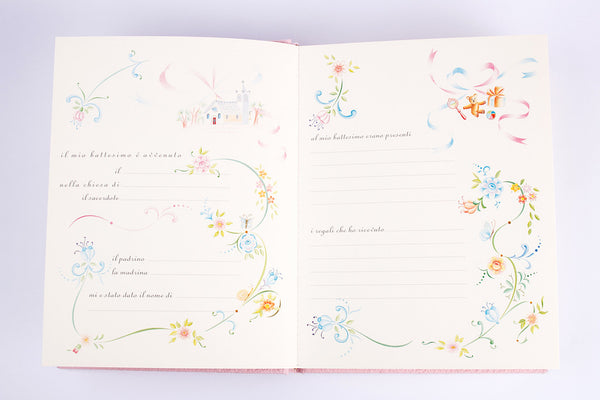 il mio battesimo è avvenuto
il
nella chiesa di
il sacerdote
il padrino
la madrina
mi è stato dato il nome di
al mio battesimo erano presenti
i regali che ho ricevuto